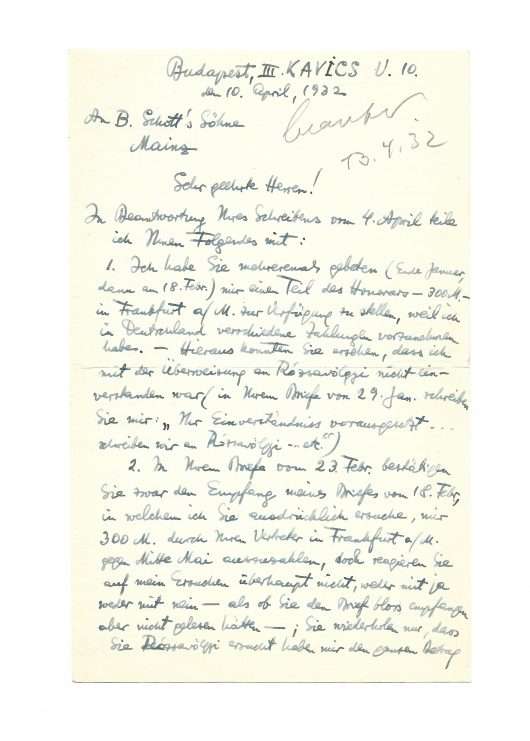 Budapest, III. KAVICS U. 10.
den 10. April, 1932
An B. Schott's Söhne
Mainz
13.4.32
Sehr geehrte Herren!
In Beantwortung Ihres Schreibens vom 4. April teile
ich Ihnen Folgendes mit:
1. Ich habe Sie mehreremals gebeten (Ende Januar,
dann am 18. Febr.) mir einen Teil des Honorars – 300 M –
in Frankfurt a/M. zur Verfügung zu stellen, weil ich
in Deutschland verschiedene Zahlungen vorzunehmen
habe. – Hieraus konnten Sie ersehen, dass ich
mit der Überweisung an Rózsavölgyi nicht ein-
verstanden war (in Ihrem Briefe vom 29. Jan. schreiben
Sie mir: „Ihr Einverständniss vorausgesetzt ...
schreiben wir an Rózsavölgyi ... etc.")
2. In Ihrem Briefe vom 23. Febr. bestätigen
Sie zwar den Empfang meines Briefes vom 18. Febr,
in welchem ich Sie ausdrücklich ersuche, mir
300 M. durch Ihren Vertreter in Frankfurt a/M.
gegen Mitte Mai auszuzahlen, doch reagieren Sie
auf mein Ersuchen überhaupt nicht, weder mit ja
weder mit nein – als ob Sie den Brief bloss empfangen
aber nicht gelesen hätten – ; Sie wiederholen nur, dass
Sie Rózsavölgyi ersucht haben mir den ganzen Betrag